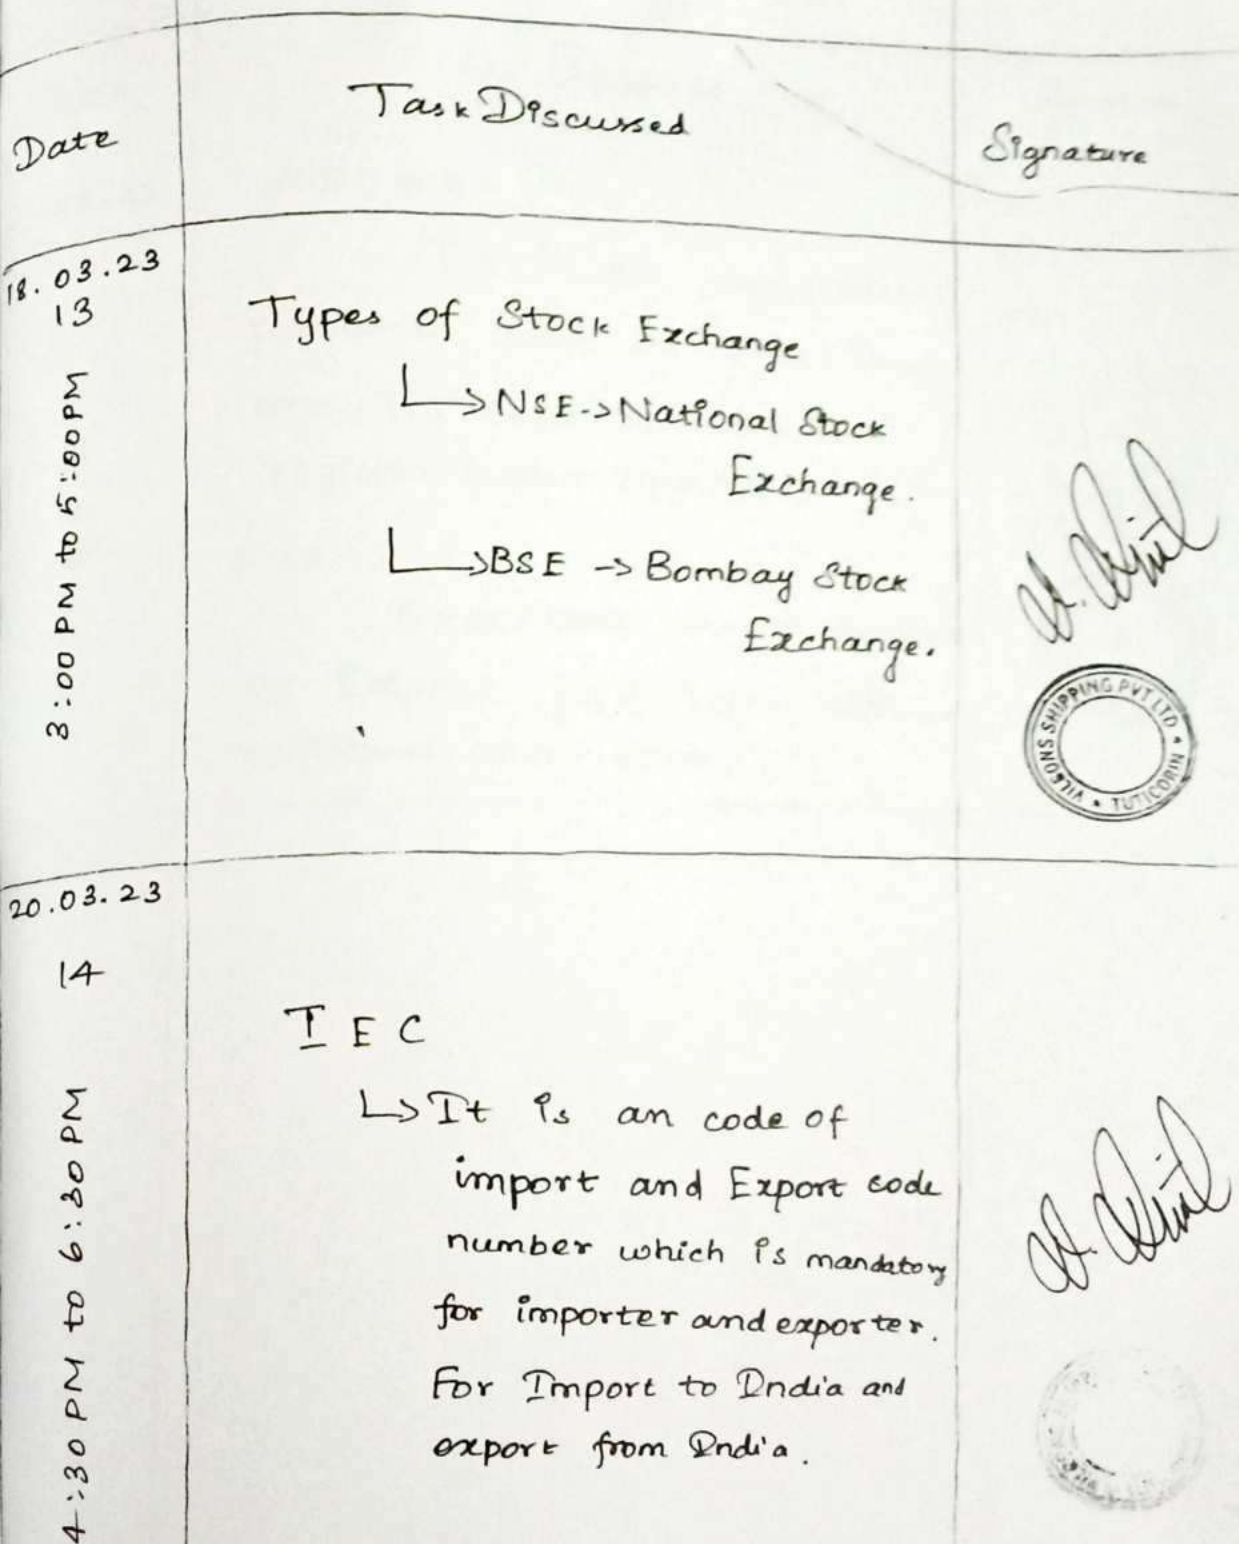 Date
Task Discussed
Signature
18.03.23
13
3:00 PM to 5:00 PM
Types of Stock Exchange
↳ NSE -> National Stock
Exchange.
↳ BSE -> Bombay Stock
Exchange.
VILSONS SHIPPING PVT LTD * TUTICORIN *
20.03.23
14
4:30 PM to 6:30 PM
I E C
↳ It is an code of
import and Export code
number which is mandatory
for importer and exporter.
For Import to India and
export from India.